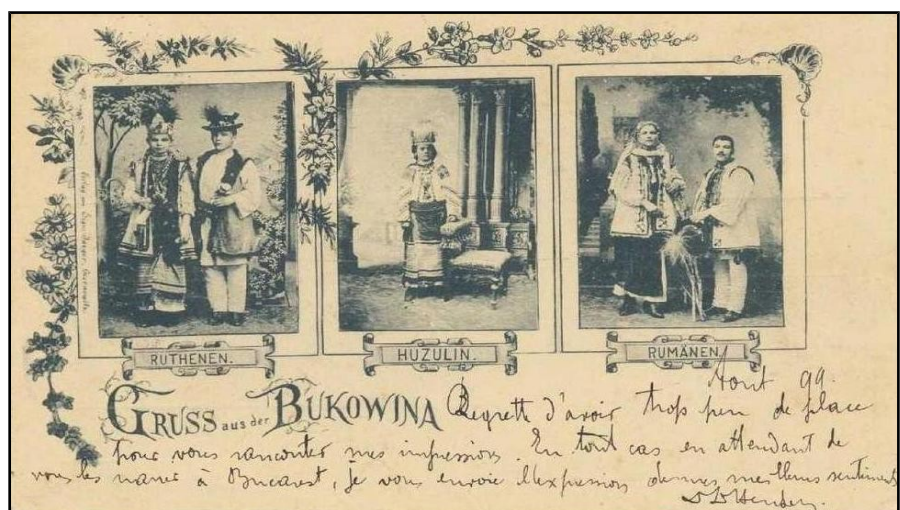 RUTHENEN.
HUZULIN.
RUMÄNEN.
GRUSS aus der BUKOWINA
Aout 99.
Regrette d'avoir trop peu de place
pour vous raconter mes impressions. En tout cas en attendant de
vous les à Bucarest, je vous envoie l'expression de mes meilleurs sentiments